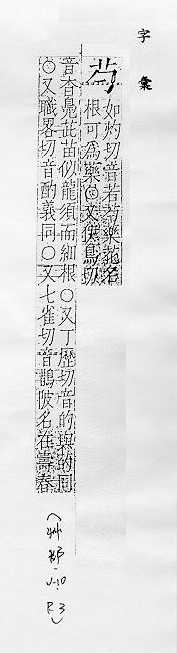 字彙
芍
如灼切音若芍藥花名
根可為藥○又侯鳥切
音杳鳧茈苗似龍須而細根○又丁歷切音的與的同
○又職畧切音酌義同○又七雀切音鵲陂名在壽春
(艸部-V-10 P.3)